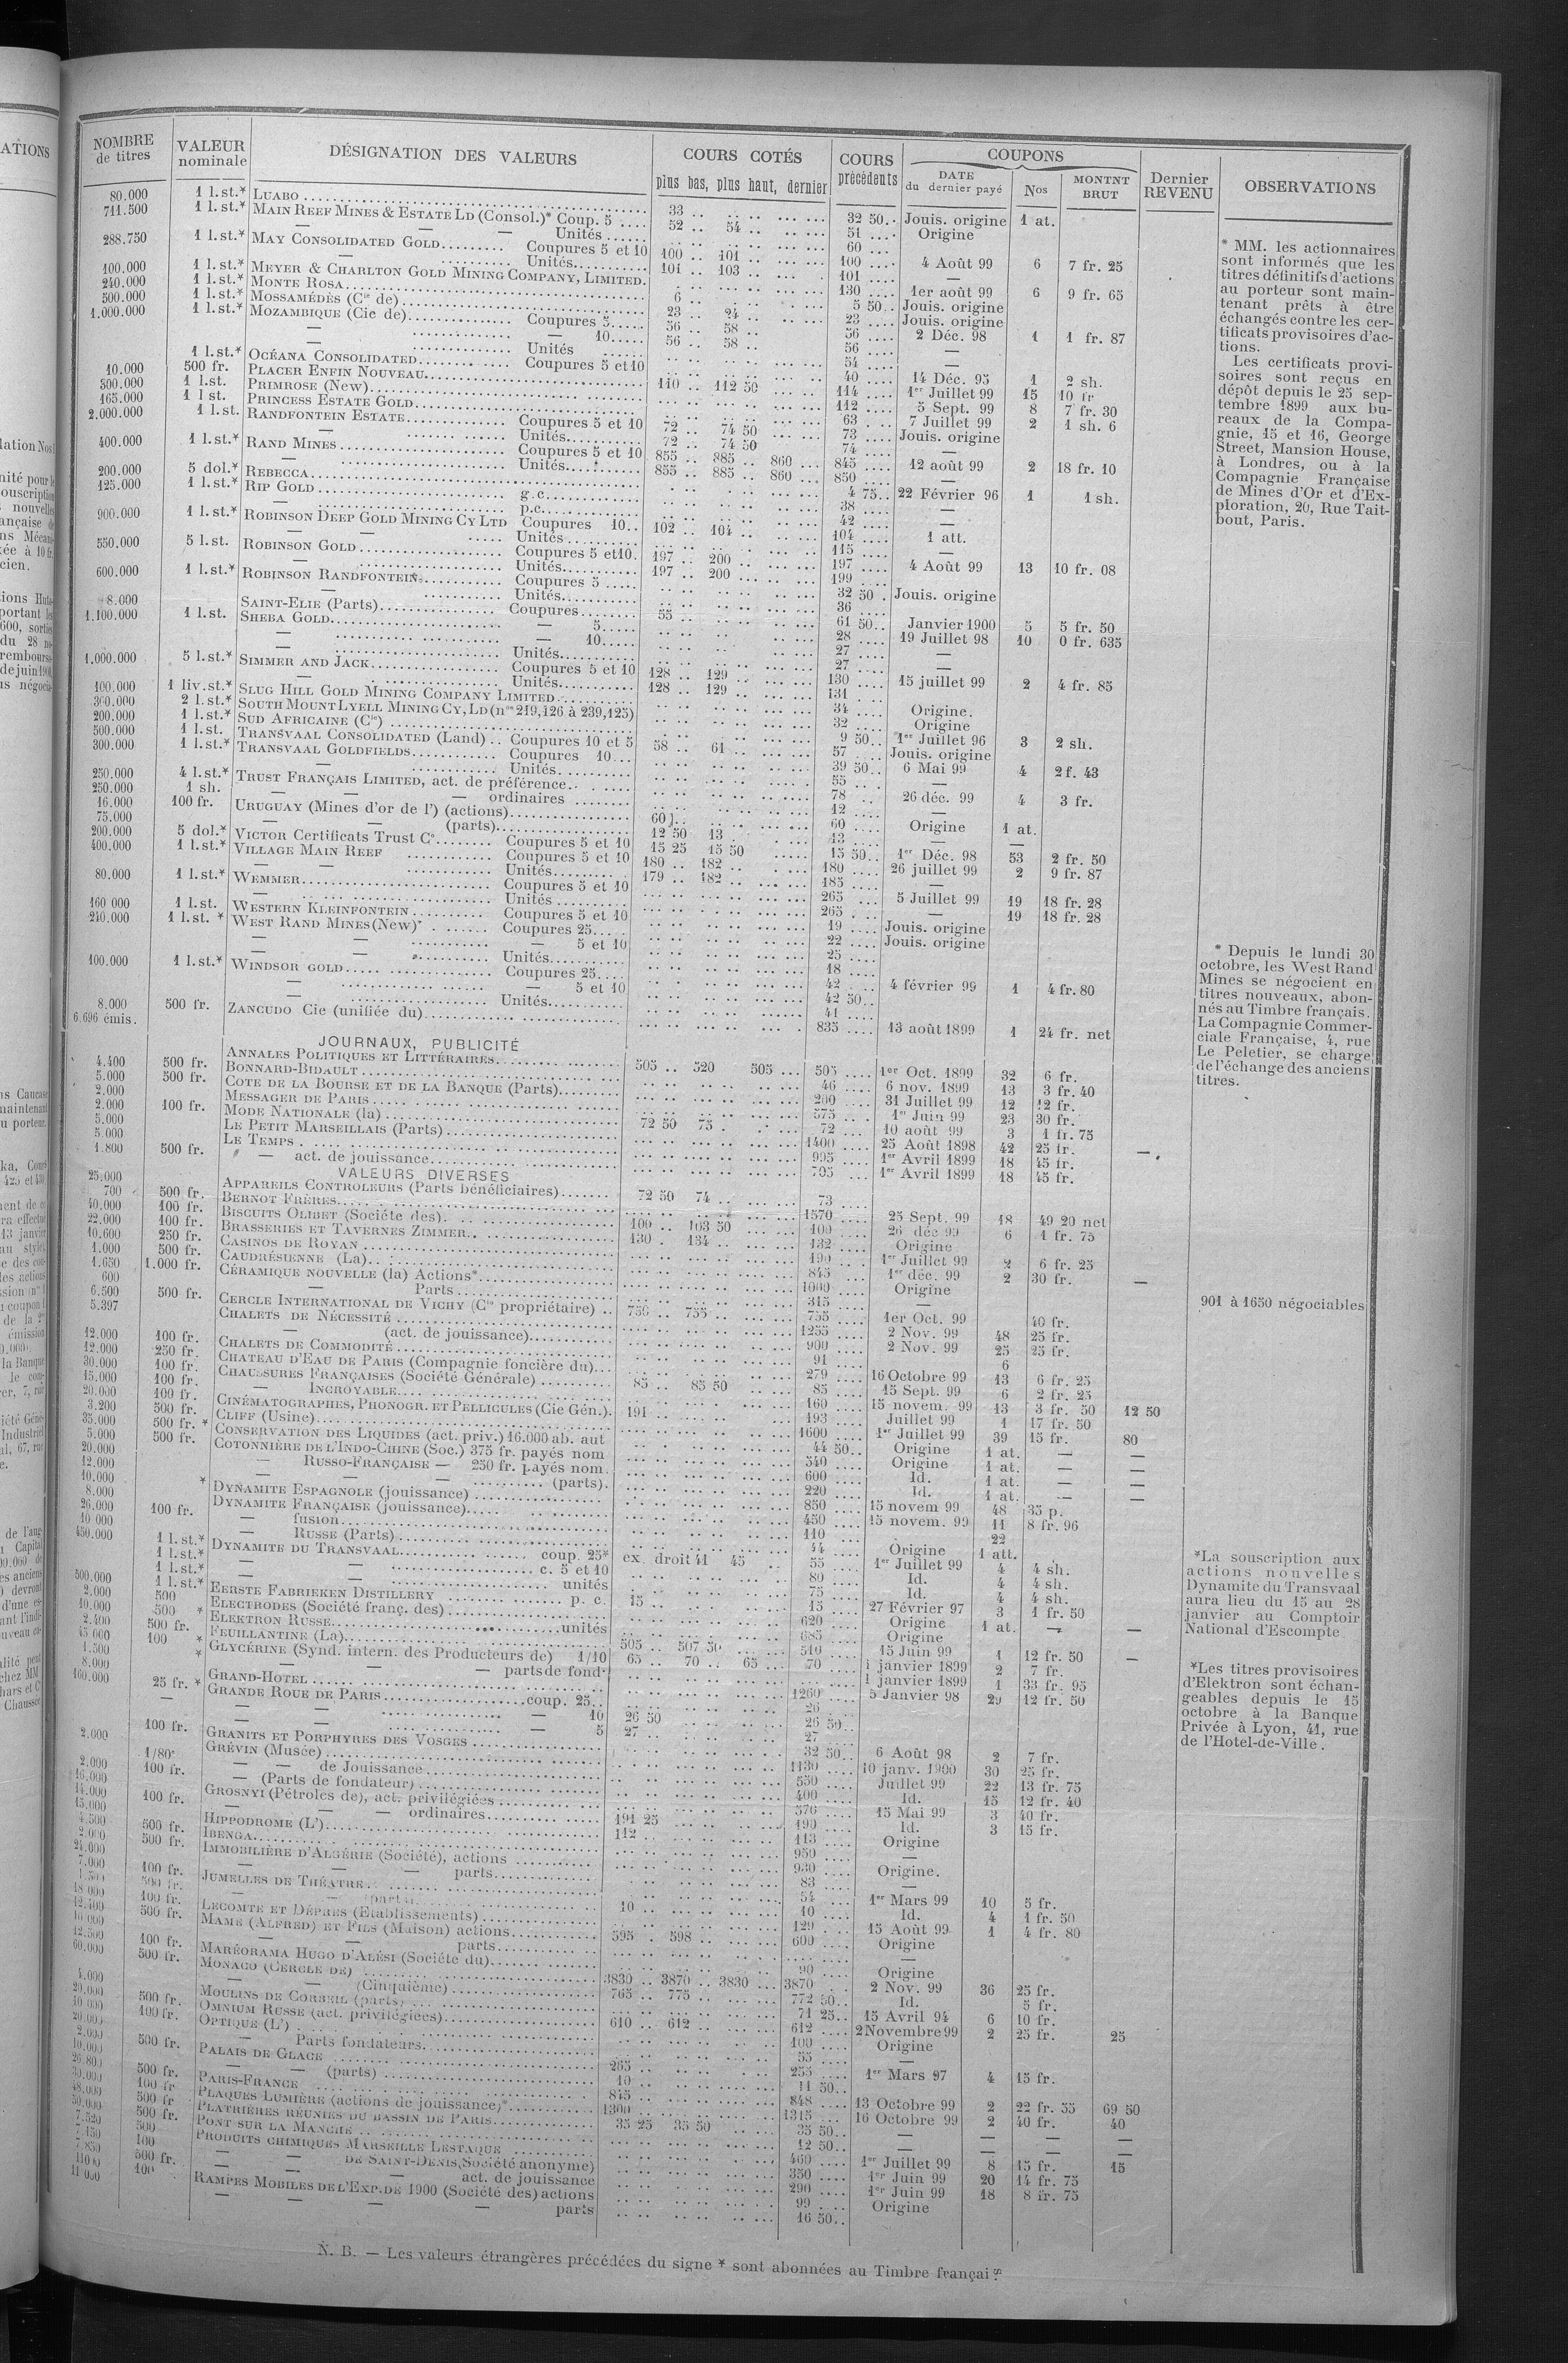 NOMBRE de titres | VALEUR nominale | DÉSIGNATION DES VALEURS | COURS COTÉS plus bas, plus haut, dernier | COURS précédents | COUPONS DATE du dernier payé | Nos | MONTNT BRUT | Dernier REVENU | OBSERVATIONS
80.000 1 l.st.* LUABO 33 .. 32 50.. Jouis. origine 1 at.
711.500 1 l.st.* MAIN REEF MINES & ESTATE LD (Consol.)* Coup. 5 52 .. 54 .. 51 .... Origine
— — — Unités 60 ....
288.750 1 l.st.* MAY CONSOLIDATED GOLD Coupures 5 et 10 100 .. 101 .. 100 .... 4 Août 99 6 7 fr. 25
— Unités 101 .. 103 .. 101 ....
100.000 1 l.st.* MEYER & CHARLTON GOLD MINING COMPANY, LIMITED. 130 .... 1er août 99 6 9 fr. 65
240.000 1 l.st.* MONTE ROSA 6 .. 5 50.. Jouis. origine
500.000 1 l.st.* MOSSAMÉDÈS (Cie de) 23 .. 24 .. 23 .... Jouis. origine
1.000.000 1 l.st.* MOZAMBIQUE (Cie de) Coupures 5 56 .. 58 .. 56 .... 2 Déc. 98 1 1 fr. 87
— — 10 56 .. 58 .. 56 .... —
— Unités 54 ....
1 l.st.* OCÉANA CONSOLIDATED Coupures 5 et 10 40 .... 14 Déc. 95 1 2 sh.
10.000 500 fr. PLACER ENFIN NOUVEAU 110 .. 112 50 114 .... 1er Juillet 99 15 10 fr
300.000 1 l.st. PRIMROSE (New) 112 .... 5 Sept. 99 8 7 fr. 30
165.000 1 l st. PRINCESS ESTATE GOLD 63 .... 7 Juillet 99 2 1 sh. 6
2.000.000 1 l.st. RANDFONTEIN ESTATE Coupures 5 et 10 72 .. 74 50 73 .... Jouis. origine
— Unités 72 .. 74 50 74 .... —
400.000 1 l.st.* RAND MINES Coupures 5 et 10 855 .. 885 .. 860 ... 845 .... 12 août 99 2 18 fr. 10
— Unités 855 .. 885 .. 860 ... 850 .... —
200.000 5 dol.* REBECCA 4 75.. 22 Février 96 1 1 sh.
125.000 1 l.st.* RIP GOLD g.c. 38 .... —
— p.c. 42 .... —
900.000 1 l.st.* ROBINSON DEEP GOLD MINING CY LTD Coupures 10.. 102 .. 104 .. 104 .... 1 att.
— Unités 115 .... —
550.000 5 l.st. ROBINSON GOLD Coupures 5 et 10. 197 .. 200 197 .... 4 Août 99 13 10 fr. 08
— Unités 197 .. 200 199 ....
600.000 1 l.st.* ROBINSON RANDFONTEIN Coupures 5 32 50 . Jouis. origine
— Unités 36 ....
8.000 SAINT-ELIE (Parts) Coupures 55 .. 61 50.. Janvier 1900 5 5 fr. 50
1.100.000 1 l.st. SHEBA GOLD — 5 28 .... 19 Juillet 98 10 0 fr. 635
— — 10 27 .... —
— Unités 27 .... —
1.000.000 5 l.st.* SIMMER AND JACK Coupures 5 et 10 128 .. 129 130 .... 15 juillet 99 2 4 fr. 85
— Unités 128 .. 129 .. 131 ....
100.000 1 liv.st.* SLUG HILL GOLD MINING COMPANY LIMITED 34 .... Origine.
300.000 2 l.st.* SOUTH MOUNT LYELL MINING CY, LD (nos 219,126 à 239,125) 32 .... Origine
200.000 1 l.st.* SUD AFRICAINE (Cie) 9 50.. 1er Juillet 96 3 2 sh.
500.000 1 l.st. TRANSVAAL CONSOLIDATED (Land) .. Coupures 10 et 5 58 .. 61 57 .... Jouis. origine
300.000 1 l.st.* TRANSVAAL GOLDFIELDS Coupures 10... 39 50.. 6 Mai 99 4 2 f. 43
— Unités 55 .... —
250.000 4 l.st.* TRUST FRANÇAIS LIMITED, act. de préférence 78 .. 26 déc. 99 4 3 fr.
250.000 1 sh. — — — ordinaires 12 .... —
16.000 100 fr. URUGUAY (Mines d'or de l') (actions) 60 .... Origine 1 at.
75.000 — — (parts) 12 50 13 . 13 .... — —
200.000 5 dol.* VICTOR Certificats Trust Co Coupures 5 et 10 15 25 15 50 15 50.. 1er Déc. 98 53 2 fr. 50
400.000 1 l.st.* VILLAGE MAIN REEF Coupures 5 et 10 180 .. 182 .. 180 .... 26 juillet 99 2 9 fr. 87
— — Unités 179 .. 182 .. 185 .... —
80.000 1 l.st.* WEMMER Coupures 5 et 10 265 .... 5 Juillet 99 19 18 fr. 28
— Unités 265 .... — 19 18 fr. 28
160 000 1 l.st. WESTERN KLEINFONTEIN Coupures 5 et 10 19 .... Jouis. origine
210.000 1 l.st. * WEST RAND MINES (New)* Coupures 25 22 .... Jouis. origine
— — — 5 et 10 25 ....
— — Unités 18 ....
100.000 1 l.st.* WINDSOR GOLD Coupures 25 42 .... 4 février 99 1 4 fr. 80
— — 5 et 10 42 50..
— Unités 41 ....
8.000 500 fr. ZANCUDO Cie (unifiée du) 835 .... 13 août 1899 1 24 fr. net
6.696 émis.
JOURNAUX, PUBLICITÉ
4.400 500 fr. ANNALES POLITIQUES ET LITTÉRAIRES 505 .. 520 505 ... 505 .... 1er Oct. 1899 32 6 fr.
5.000 500 fr. BONNARD-BIDAULT 46 .... 6 nov. 1899 13 3 fr. 40
2.000 COTE DE LA BOURSE ET DE LA BANQUE (Parts) 200 .... 31 Juillet 99 12 12 fr.
2.000 100 fr. MESSAGER DE PARIS 575 .... 1er Juin 99 23 30 fr.
5.000 MODE NATIONALE (la) 72 50 75 . 72 .... 10 août 99 3 1 fr. 75
5.000 LE PETIT MARSEILLAIS (Parts) 1400 .... 25 Août 1898 42 25 fr.
1.800 500 fr. LE TEMPS 995 .... 1er Avril 1899 18 45 fr.
— act. de jouissance 795 ... 1er Avril 1899 18 45 fr.
VALEURS DIVERSES
25.000 APPAREILS CONTROLEURS (Parts bénéficiaires) 72 50 74 .. 73
700 500 fr. BERNOT FRÈRES 1570 .... 25 Sept. 99 18 49 20 net
40.000 100 fr. BISCUITS OLIBET (Société des) 100 .. 103 50 100 .... 26 déc 99 6 1 fr. 75
22.000 100 fr. BRASSERIES ET TAVERNES ZIMMER 130 . 134 .. 132 .... Origine
10.600 250 fr. CASINOS DE ROYAN 190 .... 1er Juillet 99 2 6 fr. 25
1.000 500 fr. CAUDRÉSIENNE (La) 845 .... 1er déc. 99 2 30 fr. —
1.650 1.000 fr. CÉRAMIQUE NOUVELLE (la) Actions* 1000 .... Origine
600 — Parts 315 .... —
6.500 500 fr. CERCLE INTERNATIONAL DE VICHY (Cie propriétaire) 750 .. 755 .. 755 .... 1er Oct. 99 40 fr.
5.397 CHALETS DE NÉCESSITÉ 1255 .... 2 Nov. 99 48 25 fr.
— (act. de jouissance) 900 .... 2 Nov. 99 25 25 fr.
12.000 100 fr. CHALETS DE COMMODITÉ 91 .... 6
12.000 250 fr. CHATEAU D'EAU DE PARIS (Compagnie foncière du) 279 .... 16 Octobre 99 13 6 fr. 25
30.000 100 fr. CHAUSSURES FRANÇAISES (Société Générale) 85 .. 85 50 85 .... 15 Sept. 99 6 2 fr. 25
15.000 100 fr. — INCROYABLE 160 .... 15 novem. 99 13 3 fr. 50 12 50
20.000 100 fr. CINÉMATOGRAPHES, PHONOGR. ET PELLICULES (Cie Gén.). 191 .. 193 .... Juillet 99 1 17 fr. 50
3.200 500 fr. CLIFF (Usine) 1600 .... 1er Juillet 99 39 15 fr. 80
35.000 500 fr. * CONSERVATION DES LIQUIDES (act. priv.) 16.000 ab. aut 44 50.. Origine 1 at. — —
5.000 500 fr. COTONNIÈRE DE L'INDO-CHINE (Soc.) 375 fr. payés nom 340 .... Origine 1 at. — —
20.000 — RUSSO-FRANÇAISE — 250 fr. payés nom. 600 .... Id. 1 at. — —
12.000 — — (parts). 220 .... Id. 1 at. — —
10.000 * DYNAMITE ESPAGNOLE (jouissance) 850 .... 15 novem 99 48 35 p.
8.000 DYNAMITE FRANÇAISE (jouissance) 450 .... 15 novem. 99 11 8 fr. 96
26.000 100 fr. — fusion 110 .... 22
10 000 — RUSSE (Parts) 44 .... Origine 1 att.
450.000 1 l.st.* DYNAMITE DU TRANSVAAL coup. 25* ex. droit 41 45 55 .... 1er Juillet 99 4 4 sh.
1 l.st.* — — c. 5 et 10 80 .... Id. 4 4 sh.
1 l.st.* — — unités 75 .... Id. 4 4 sh.
500.000 1 l.st.* EERSTE FABRIEKEN DISTILLERY p. c. 15 .. 15 .... 27 Février 97 3 1 fr. 50
2.000 500 ELECTRODES (Société franç. des) 620 .... Origine 1 at. — —
10.000 500 * ELEKTRON RUSSE unités 685 .... Origine
2.400 500 fr. FEUILLANTINE (La) 505 .. 507 50 510 .... 15 Juin 99 1 12 fr. 50 —
45 000 100 * GLYCÉRINE (Synd. intern. des Producteurs de) 1/10 65 .. 70 .. 65 ... 70 .... 1 janvier 1899 2 7 fr.
1.500 — — — parts de fond. 1 janvier 1899 1 33 fr. 95
8.000 GRAND-HOTEL 1260 .... 5 Janvier 98 29 12 fr. 50
160.000 25 fr. * GRANDE ROUE DE PARIS coup. 25 26 ....
— — — 10 26 50 26 50..
— — — 5 27 .. 27 ....
100 fr. GRANITS ET PORPHYRES DES VOSGES 32 50.. 6 Août 98 2 7 fr.
2.000 GRÉVIN (Musée) 1130 .... 10 janv. 1900 30 25 fr.
— — de Jouissance 550 .... Juillet 99 22 13 fr. 75
2.000 1/80e — (Parts de fondateur) 400 .... Id. 15 12 fr. 40
16.000 100 fr. GROSNYI (Pétroles de), act. privilégiées 15 Mai 99 3 40 fr.
14.000 — — — ordinaires 191 25 190 .... Id. 3 15 fr.
15.000 100 fr. HIPPODROME (L') 112 .. 113 .... Origine
4.500 500 fr. IBENGA 950 .... —
2.000 500 fr. IMMOBILIÈRE D'ALGÉRIE (Société), actions 930 .... Origine.
24.000 — — — parts 83 .... —
7.000 100 fr. JUMELLES DE THÉATRE 54 .... 1er Mars 99 10 5 fr.
500 fr. — (parts) 10 .. 10 .... Id. 4 1 fr. 50
18 000 100 fr. LECOMTE ET DÉPRÈS (Etablissements) 129 .... 15 Août 99 1 4 fr. 80
500 fr. MAME (ALFRED) ET FILS (Maison) actions 595 .. 598 .. 600 .... Origine
10 000 — — — parts —
12.500 100 fr. MARÉORAMA HUGO D'ALÉSI (Société du) 90 .... Origine
60.000 500 fr. MONACO (CERCLE DE) 3830 .. 3870 .. 3830 ... 3870 2 Nov. 99 36 25 fr.
— — (Cinquième) 765 .. 775 ... 772 50.. Id. 5 fr.
4.000 MOULINS DE CORBEIL (parts) 71 25.. 15 Avril 94 6 10 fr.
20.000 500 fr. OMNIUM RUSSE (act. privilégiées) 610 .. 612 .. 612 .... 2 Novembre 99 2 25 fr. 25
10 000 100 fr. OPTIQUE (L') 100 .... Origine
20.000 — Parts fondateurs 55 .... —
2.000 500 fr. PALAIS DE GLACE 265 .. 255 .... 1er Mars 97 4 15 fr.
10.000 — — (parts) 10 .. 11 50..
26.800 500 fr. PARIS-FRANCE 845 .. 848 .... 13 Octobre 99 2 22 fr. 55 69 50
30.000 100 fr. PLAQUES LUMIÈRE (actions de jouissance)* 1300 .. 1315 ... 16 Octobre 99 2 40 fr. 40
48.000 500 fr PLATRIÈRES RÉUNIES DU BASSIN DE PARIS 35 25 35 50 35 50.. — — — —
50.000 500 fr. PONT SUR LA MANCHE 12 50.. — — — —
7.520 500 PRODUITS CHIMIQUES MARSEILLE LESTAQUE 460 .... 1er Juillet 99 8 15 fr. 15
100 — DE SAINT-DENIS, Société anonyme) 350 .... 1er Juin 99 20 14 fr. 75
500 fr. — — act. de jouissance 290 .... 1er Juin 99 18 8 fr. 75
100 RAMPES MOBILES DE L'EXP. DE 1900 (Société des) actions 99 .... Origine
11 000 — — — parts 16 50..
* MM. les actionnaires
sont informés que les
titres définitifs d'actions
au porteur sont main-
tenant prêts à être
échangés contre les cer-
tificats provisoires d'ac-
tions.
Les certificats provi-
soires sont reçus en
dépôt depuis le 25 sep-
tembre 1899 aux bu-
reaux de la Compa-
gnie, 15 et 16, George
Street, Mansion House,
à Londres, ou à la
Compagnie Française
de Mines d'Or et d'Ex-
ploration, 20, Rue Tait-
bout, Paris.
* Depuis le lundi 30
octobre, les West Rand
Mines se négocient en
titres nouveaux, abon-
nés au Timbre français.
La Compagnie Commer-
ciale Française, 4, rue
Le Peletier, se charge
de l'échange des anciens
titres.
901 à 1650 négociables
*La souscription aux
actions nouvelles
Dynamite du Transvaal
aura lieu du 15 au 28
janvier au Comptoir
National d'Escompte
*Les titres provisoires
d'Elektron sont échan-
geables depuis le 15
octobre à la Banque
Privée à Lyon, 41, rue
de l'Hotel-de-Ville.
N. B. — Les valeurs étrangères précédées du signe * sont abonnées au Timbre françai s